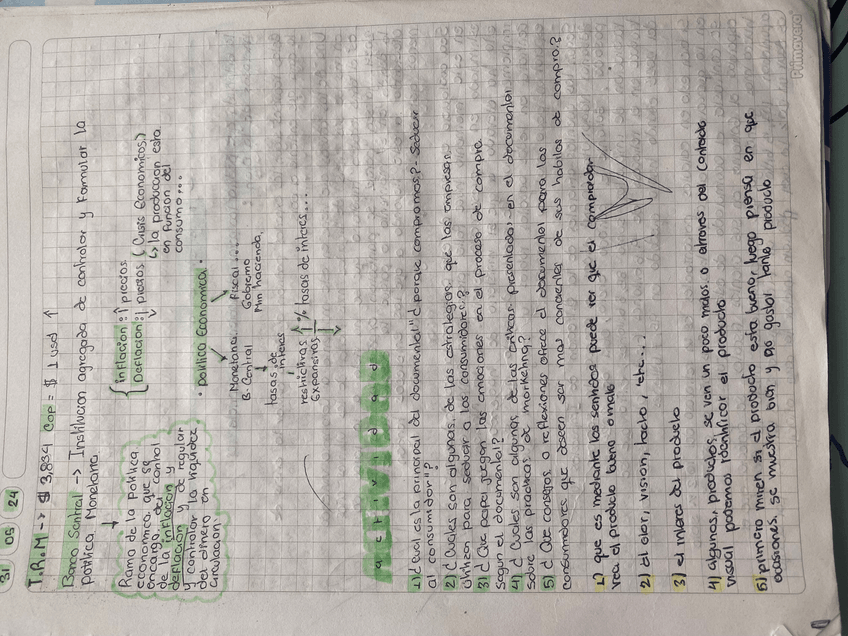 31 05 24
T.R.M → $ 3,834 COP = $ 1 USD ↑
Banco Sentral → Institucion agregada de controlar y formular la
politica Monetaria.
Rama de la politica
economica que se
encarga del control
de la inflacion y
deflacion y de regular
y controlar la liquidez
del dinero en
circulacion
inflacion: ↑ precios
Deflacion: ↓ precios (Crisis Economicas)
↳ la produccion esta
en funcion del
consumo...
• politica Economica •
Monetaria
B. Central
tasas de
interes
restrictivas ↑ % tasas de interes...
Expansivas ↓
fiscal...
Gobierno
Min hacienda
actividad
1) ¿Cual es la principal del documental "¿porque compramos?- seducir
al consumidor"?
2) ¿Cuales son algunas de las estrategias que las empresas
utilizan para seducir a los consumidores?
3) ¿Que papel juegan las emociones en el proceso de compra
segun el documental?
4) ¿Cuales son algunas de las criticas presentadas en el documental
sobre las practicas de marketing?
5) ¿Que consejos o reflexiones ofrece el documental para los
consumidores que deseen ser mas concientes de sus habitos de compra?
1) que es mediante los sentidos puede ver que el comprador
vea el producto bueno o malo
2) el olor, vision, tacto, etc...
3) el interes del producto
4) algunos productos se ven un poco malos o atraves del contacto
visual podemos identificar el producto
5) primero miren si el producto esta bueno, luego piensa en que
ocasiones se muestra bien y no gastar tanto producto
Primavera